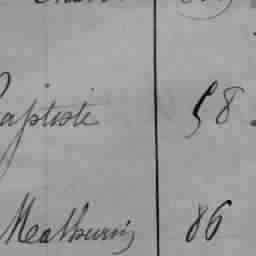 Baptiste 58
Mathurin 86